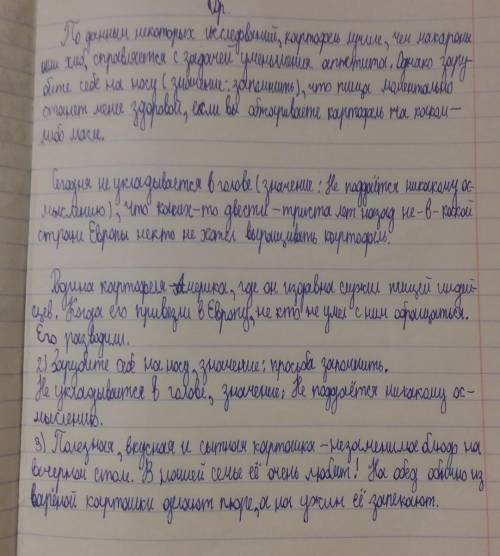 Упр.
По данным некоторых исследований, картофель лучше, чем макароны
или хлеб, справляется с задачей уменьшения аппетита. Однако зару-
бите себе на носу (значение: запомнить), что пища моментально
станет менее здоровой, если вы обжариваете картофель на каком-
либо масле.
Сегодня не укладывается в голове (значение: Не поддаётся никакому ос-
мыслению), что каких-то двести-триста лет назад не-в-какой
стране Европы некто не хотел выращивать картофель.
Родина картофеля - Америка, где он издавна служил пищей индей-
цев. Когда его привезли в Европу, не кто не умел с ним обращаться.
Его разводили.
2) Зарубите себе на носу, значение: просьба запомнить.
Не укладывается в голове, значение: Не поддаётся никакому ос-
мыслению.
3) Полезная, вкусная и сытная картошка - незаменимое блюдо на
вечерний стол. В нашей семье её очень любят! На обед обычно из
варёной картошки делают пюре, а на ужин её запекают.